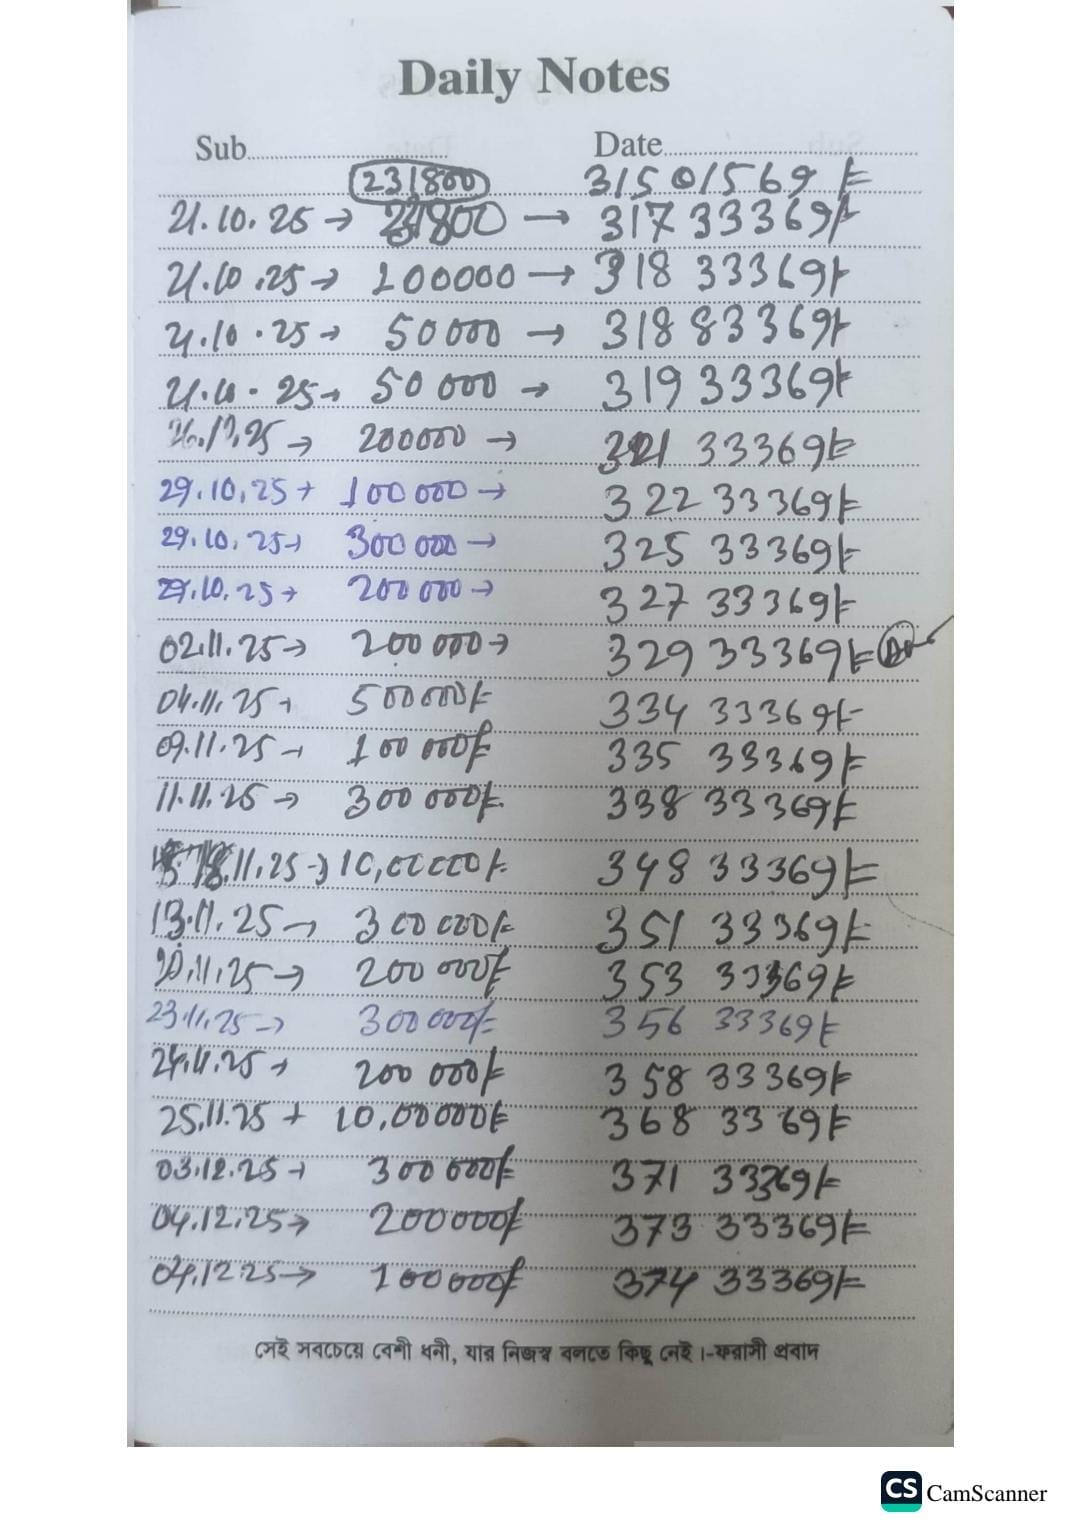 Daily Notes
Sub........................ Date........................
231800 31501569/=
21.10.25 → 231800 → 31733369/=
21.10.25 → 100000 → 31833369/=
21.10.25 → 50000 → 31883369/=
21.10.25 → 50000 → 31933369/=
200000 → 32133369/=
29.10.25 → 100000 → 32233369/=
29.10.25 → 300000 → 32533369/=
29.10.25 → 200000 → 32733369/=
02.11.25 → 200000 → 32933369/=
04.11.25 → 500000/= 33433369/=
09.11.25 → 100000/= 33533369/=
11.11.25 → 300000/= 33833369/=
18.11.25 → 10,00000/= 34833369/=
13.11.25 → 300000/= 35133369/=
20.11.25 → 200000/= 35333369/=
23.11.25 → 300000/= 35633369/=
24.11.25 → 200000/= 35833369/=
25.11.25 → 10,00000/= 3683369/=
03.12.25 → 300000/= 37133369/=
04.12.25 → 200000/= 37333369/=
04.12.25 → 100000/= 37433369/=
সেই সবচেয়ে বেশী ধনী, যার নিজস্ব বলতে কিছু নেই।-ফরাসী প্রবাদ
CS CamScanner